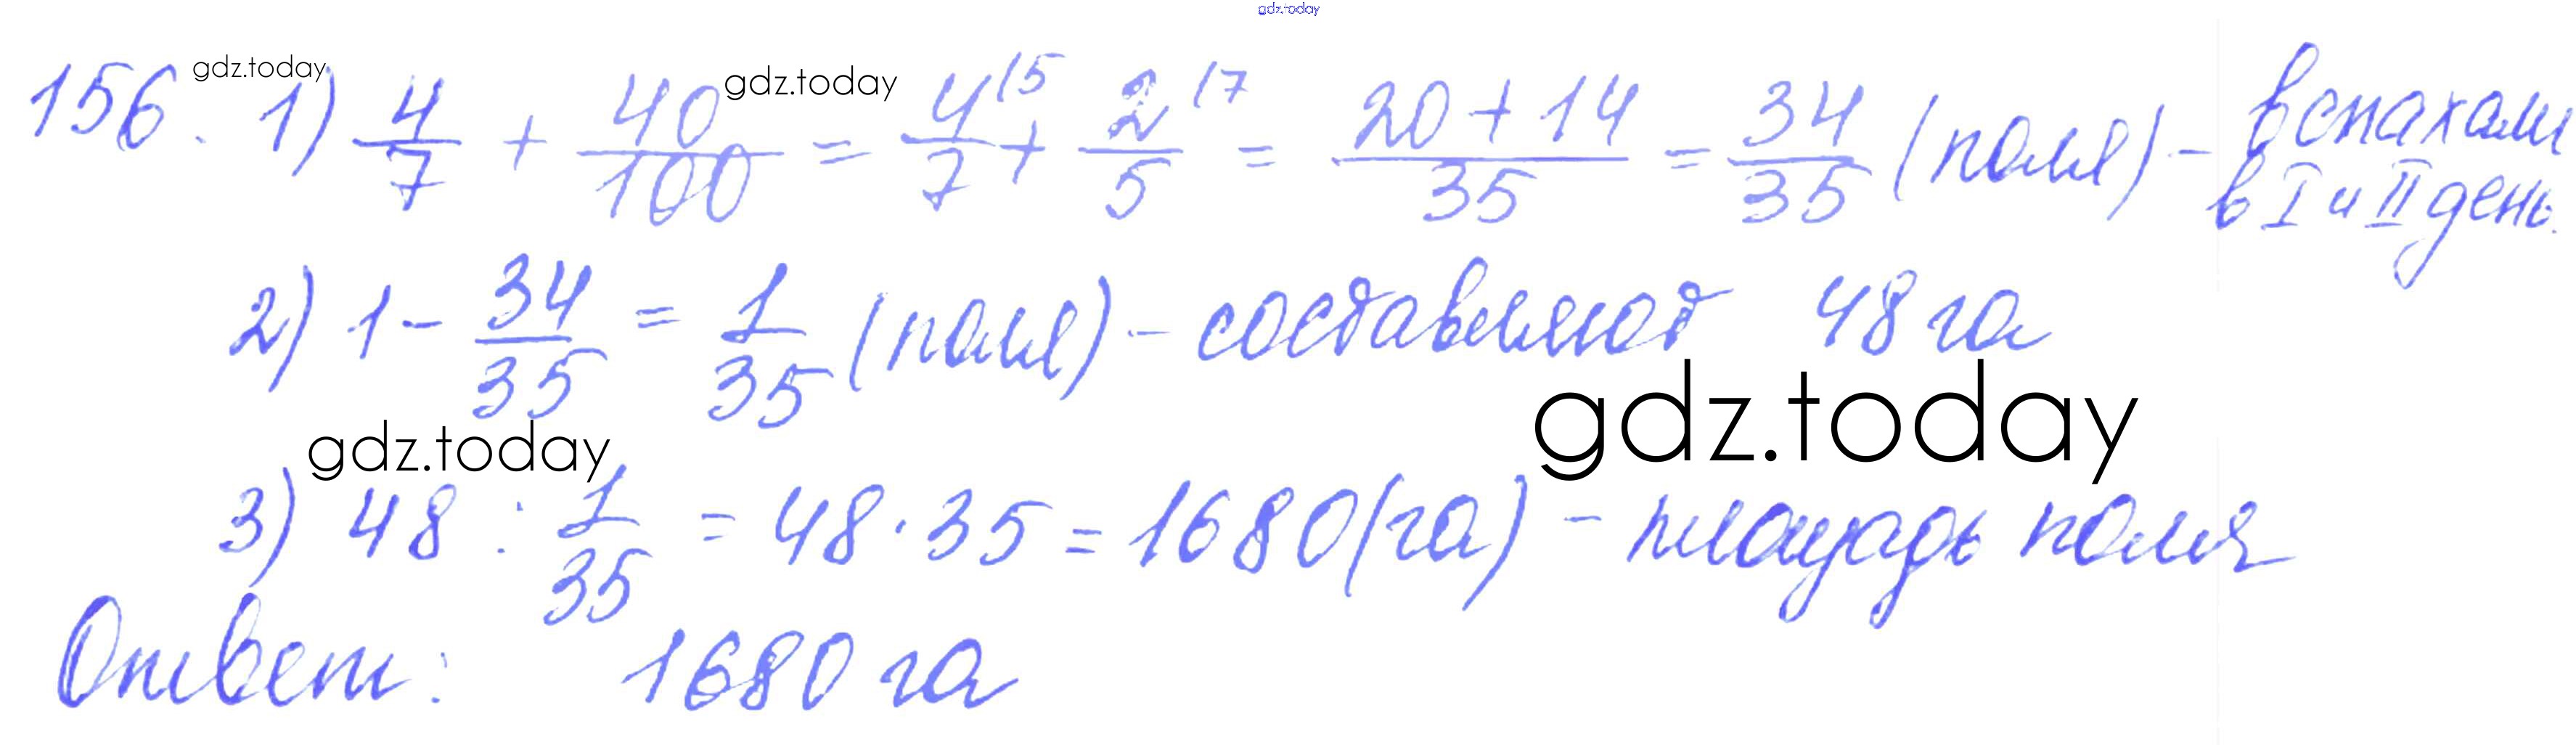 gdz.today
156. 1) 4/7 + 40/100 = 4/7 \5 + 2/5 \7 = (20 + 14)/35 = 34/35 (поля) - вспахали в I и II день.
gdz.today gdz.today
2) 1 - 34/35 = 1/35 (поля) - составляют 48 га
gdz.today gdz.today
3) 48 : 1/35 = 48 · 35 = 1680 (га) - площадь поля
Ответ: 1680 га